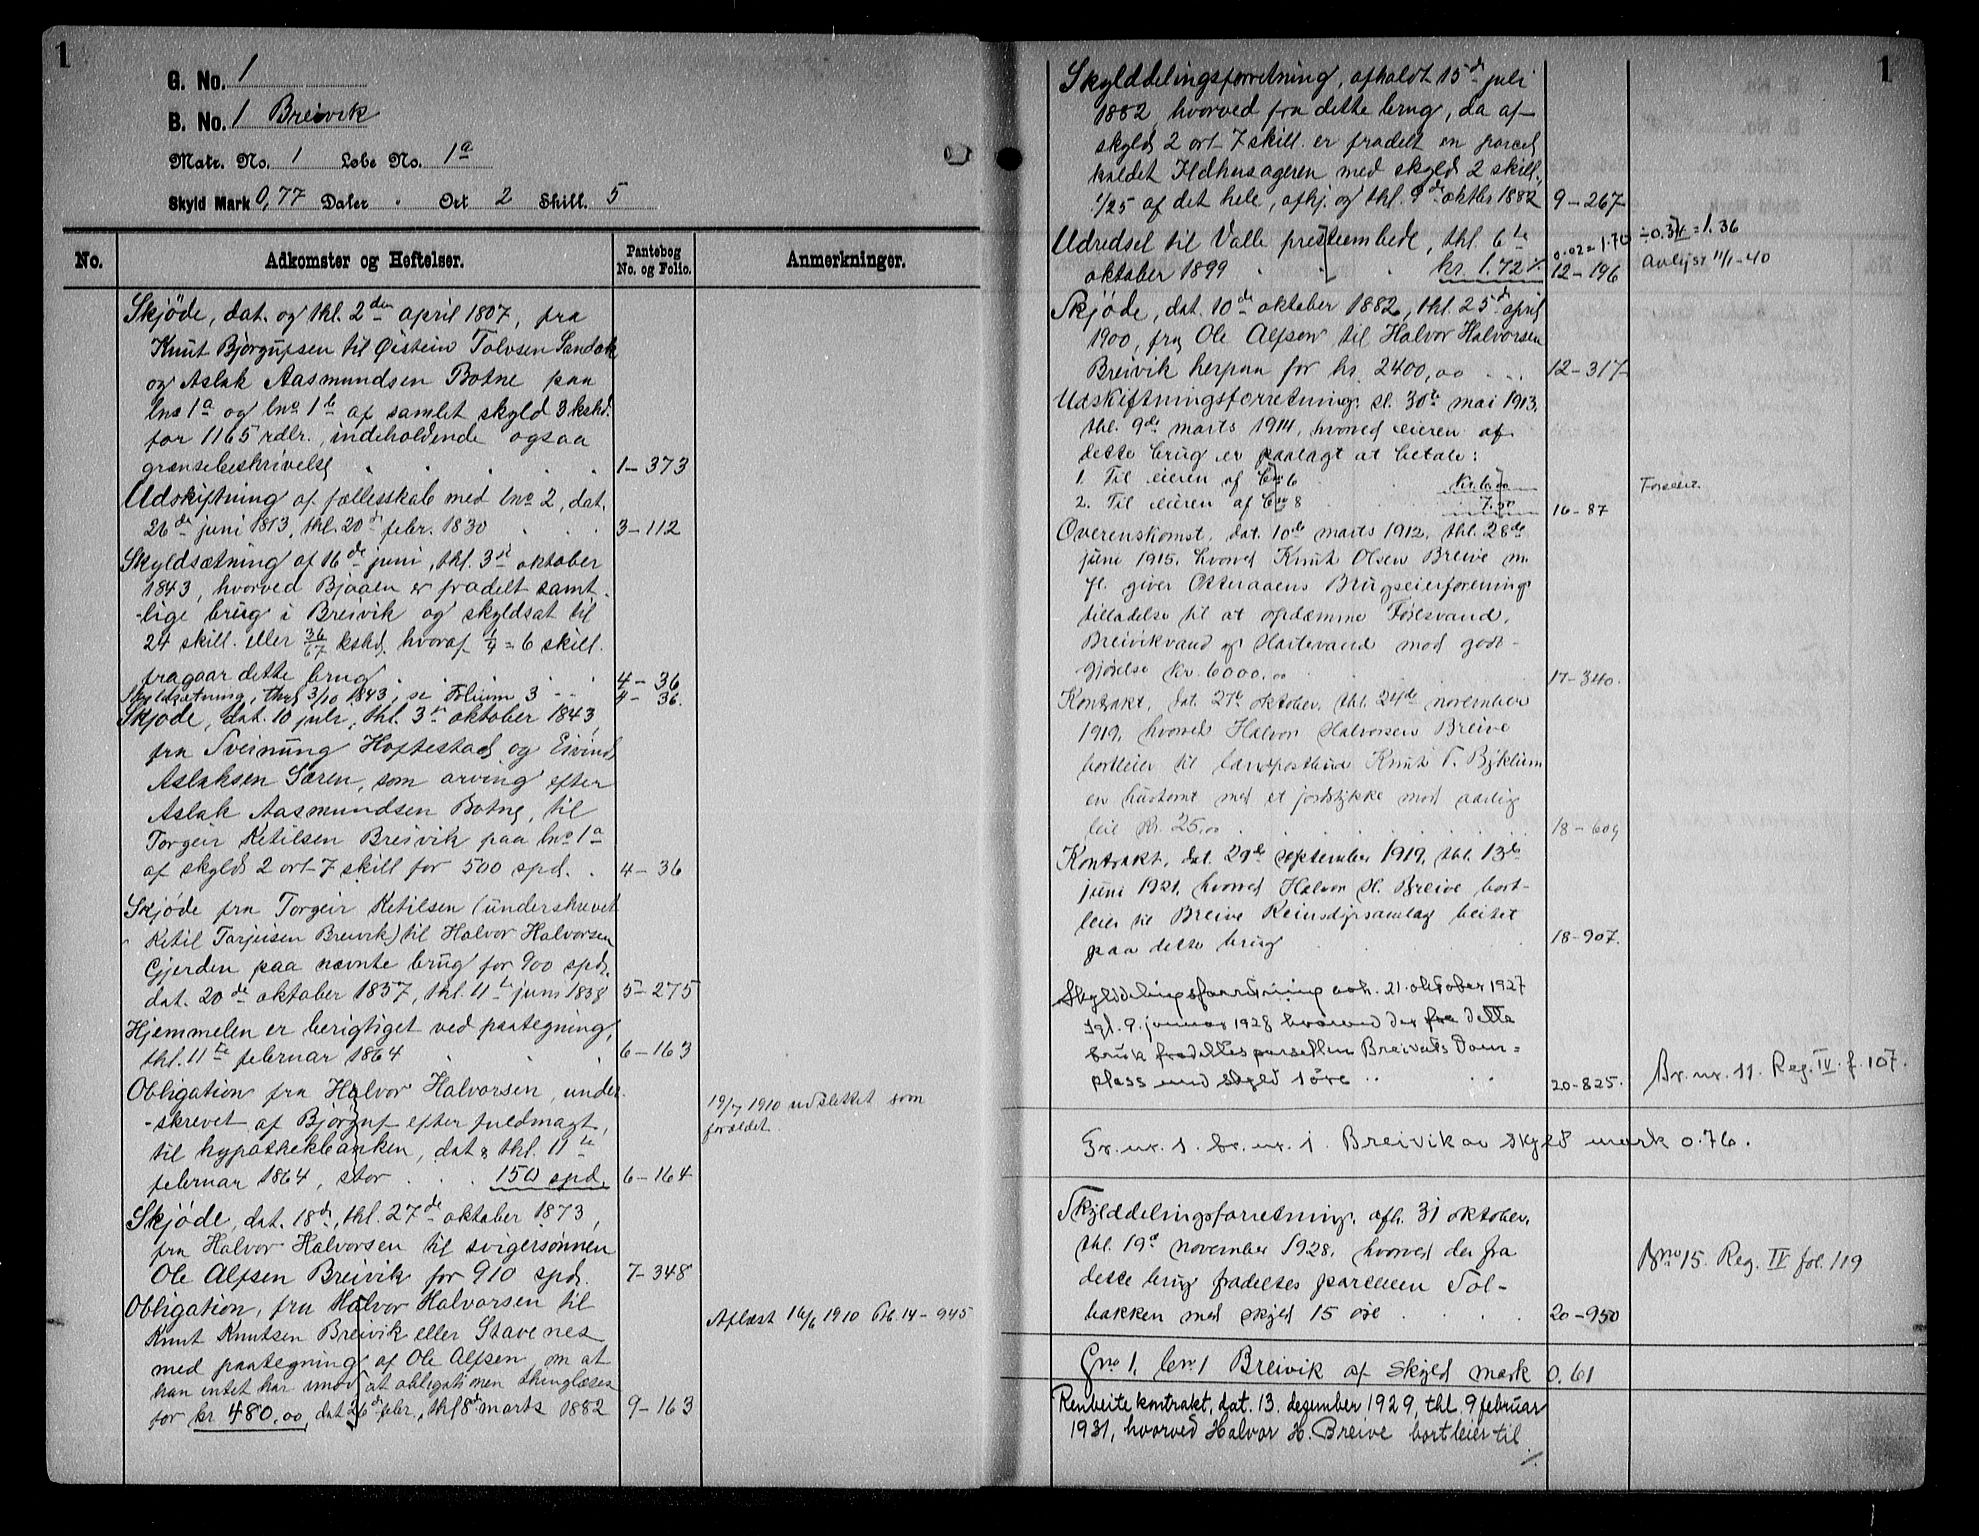 1
G. No. 1
B. No. 1 Breivik
Matr. No. 1 Løbe No. 1a
Skyld Mark 0,77 Daler " Ort 2 Skill. 5
No. Adkomster og Heftelser. Pantebog No. og Folio. Anmerkninger.
Skjøde, dat. og thl. 2den april 1807, fra
Knut Bjørgufsen til Øistein Tolvsen Sandok
og Aslak Aasmundsen Botne paa
lno 1a og lno 1b af samlet skyld 3 kshd.
for 1165 rdlr., indeholdende ogsaa
grænsebeskrivelse . . . . 1-373
Udskiftning af fællesskab med lno 2, dat.
26de juni 1813, thl. 20de febr. 1830 . . . 3-112
Skyldsætning af 16de juni, thl. 3die oktober
1843, hvorved Bjaaen er fradelt samt-
-lige brug i Breivik og skyldsat til
24 skill. eller 36/67 kshd, hvoraf 1/4 = 6 skill.
fragaar dette brug . . . . 4-36
Skyldsætning, thgl 3/10 1843, se Folium 3 - - 4- 36.
Skjøde, dat. 10 juli, thl. 3die oktober 1843,
fra Sveinung Hoftestad og Eivind
Aslaksen Særen, som arving efter
Aslak Aasmundsen Botne, til
Torgeir Ketilsen Breivik paa lno 1a
af skyld 2 ort 7 skill for 500 spd. . 4-36
Skjøde fra Torgeir Ketilsen (underskrevet
Ketil Tarjeisen Breivik) til Halvor Halvorsen
Gjerden paa nævnte brug for 900 spd.
dat. 20de oktober 1857, thl. 11te juni 1858 5-275
Hjemmelen er berigtiget ved paategning,
thl. 11te februar 1864 . . . 6-163
Obligation fra Halvor Halvorsen, under-
-skrevet af Bjørguf efter fuldmagt, 19/7 1910 udslettet som
til hypothekbanken, dat & thl. 11te forældet.
februar 1864, stor . . . 150 spd. 6-164
Skjøde, dat. 18de, thl. 27de oktober 1873,
fra Halvor Halvorsen til svigersønnen
Ole Alfsen Breivik for 910 spd. 7-348
Obligation, fra Halvor Halvorsen til
Knut Knutsen Breivik eller Stavenes Aflæst 16/6 1910 Pb. 14-945
med paategning af Ole Alfsen, om at
han intet har imod at obligationen thinglæses
for kr 480,00, dat 26de febr., thl 8de marts 1882 9-163
1
Skylddelingsforretning, afholdt 15de juli
1882 hvorved fra dette brug, da af
skyld 2 ort 7 skill. er fradelt en parcel
kaldet Ildhusageren med skyld 2 skill.,
1/25 af det hele, afhj. og thl. 9de oktbr 1882 9-267
Udredsel til Valle presteembede, thl. 6te 0.02 = 1.70 ÷ 0.34 = 1.36
oktober 1899 . . . kr. 1.72 12-196 Avlyst 11/1-40
Skjøde, dat. 10de oktober 1882, thl. 25de april
1900, fra Ole Alfsen til Halvor Halvorsen
Breivik herpaa for kr. 2400,00 . . . 12-317
Udskiftningsforretning, sl. 30te mai 1913,
thl. 9de marts 1914, hvorved eieren af
dette brug er paalagt at betale:
1. Til eieren af bno 6 . Kr. 6,00
2. Til eieren af bno 8 7.50 16-87
Overenskomst, dat. 10de marts 1912, thl. 28de
juni 1915, hvorved Knut Olsen Breive m.
fl. giver Otteraaens Brugseierforening
tilladelse til at opdæmme Førlsvand,
Breivikvand og Hartevand mod godt-
gjørelse kr. 6000,00 . . . 17-340.
Kontrakt, dat. 27de oktober, thl. 24de november
1919, hvorved Halvor Halvorsen Breive
bortleier til landpostbud Knut T. Byklum
en hustomt med et jordstykke mod aarlig
leie kr. 25,00 . . . 18-609
Kontrakt, dat. 29de september 1919, thl. 13de
juni 1921, hvorved Halvor H. Breive bort-
leier til Breive Reinsdyrsamlag beitet
paa dette brug . . . 18-907.
Skylddelingsforretning avh. 21. oktober 1927
tgl. 9. januar 1928 hvorved der fra dette
bruk fradeltes parsellen Breivats Dam-
plass med skyld 1 øre .. .. 20-825. Br. nr. 11. Reg. IV. f. 107.
Gr. nr. 1. br. nr. 1. Breivik av skyld mark 0.76.
Skylddelingsforretning, afh. 31 oktober,
thl. 19de november 1928, hvorved der fra
dette brug fradeltes parcellen Sol- Bno 15. Reg. IV fol. 119
bakken med skyld 15 øre . . . 20-950
Gno 1, bno 1 Breivik af skyld mark 0.61
Renbeite kontrakt, dat. 13. desember 1929, thl. 9 februar
1931, hvorved Halvor H. Breive bortleier til
./.